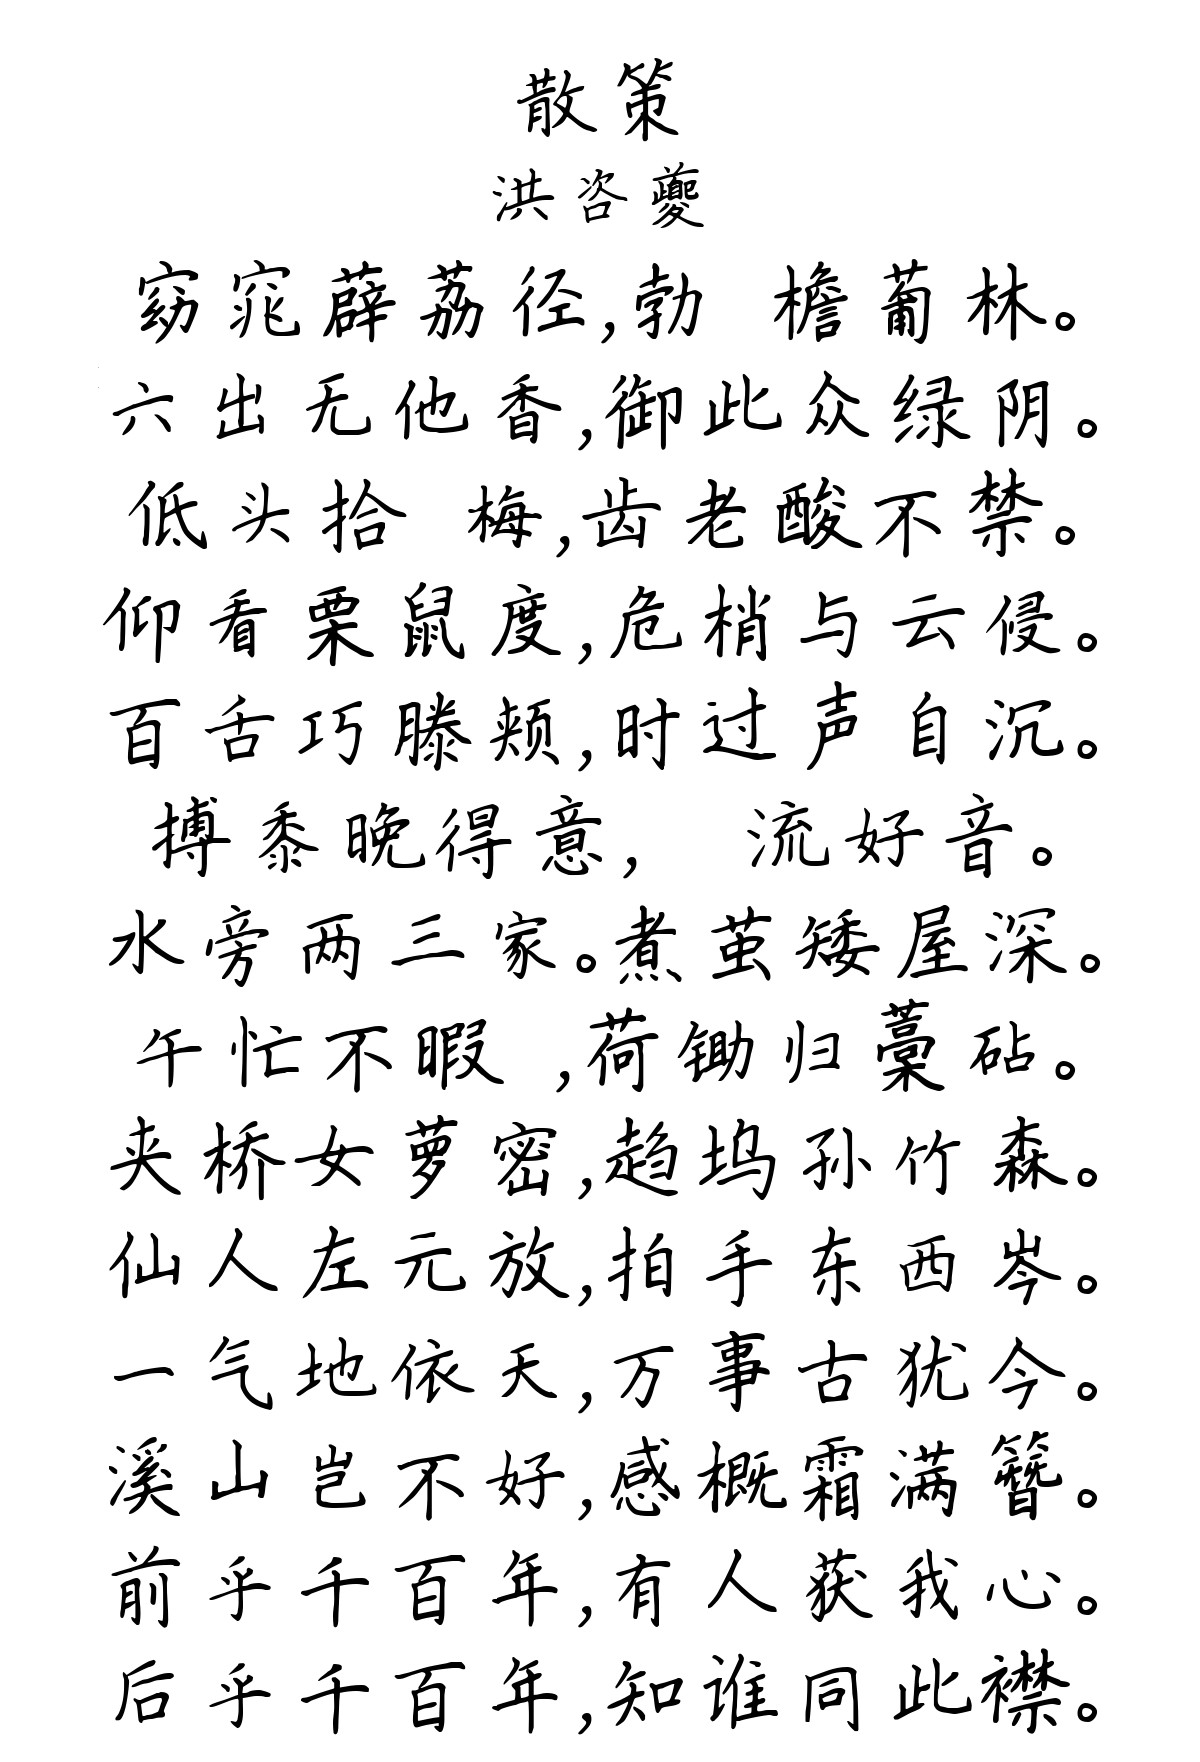 散策
洪咨夔
窈窕薜荔径,勃 檐葡林。
六出无他香,御此众绿阴。
低头拾 梅,齿老酸不禁。
仰看栗鼠度,危梢与云侵。
百舌巧滕颊,时过声自沉。
搏黍晚得意, 流好音。
水旁两三家。煮茧矮屋深。
午忙不暇 ,荷锄归藁砧。
夹桥女萝密,趋坞孙竹森。
仙人左元放,拍手东西岑。
一气地依天,万事古犹今。
溪山岂不好,感概霜满簪。
前乎千百年,有人获我心。
后乎千百年,知谁同此襟。